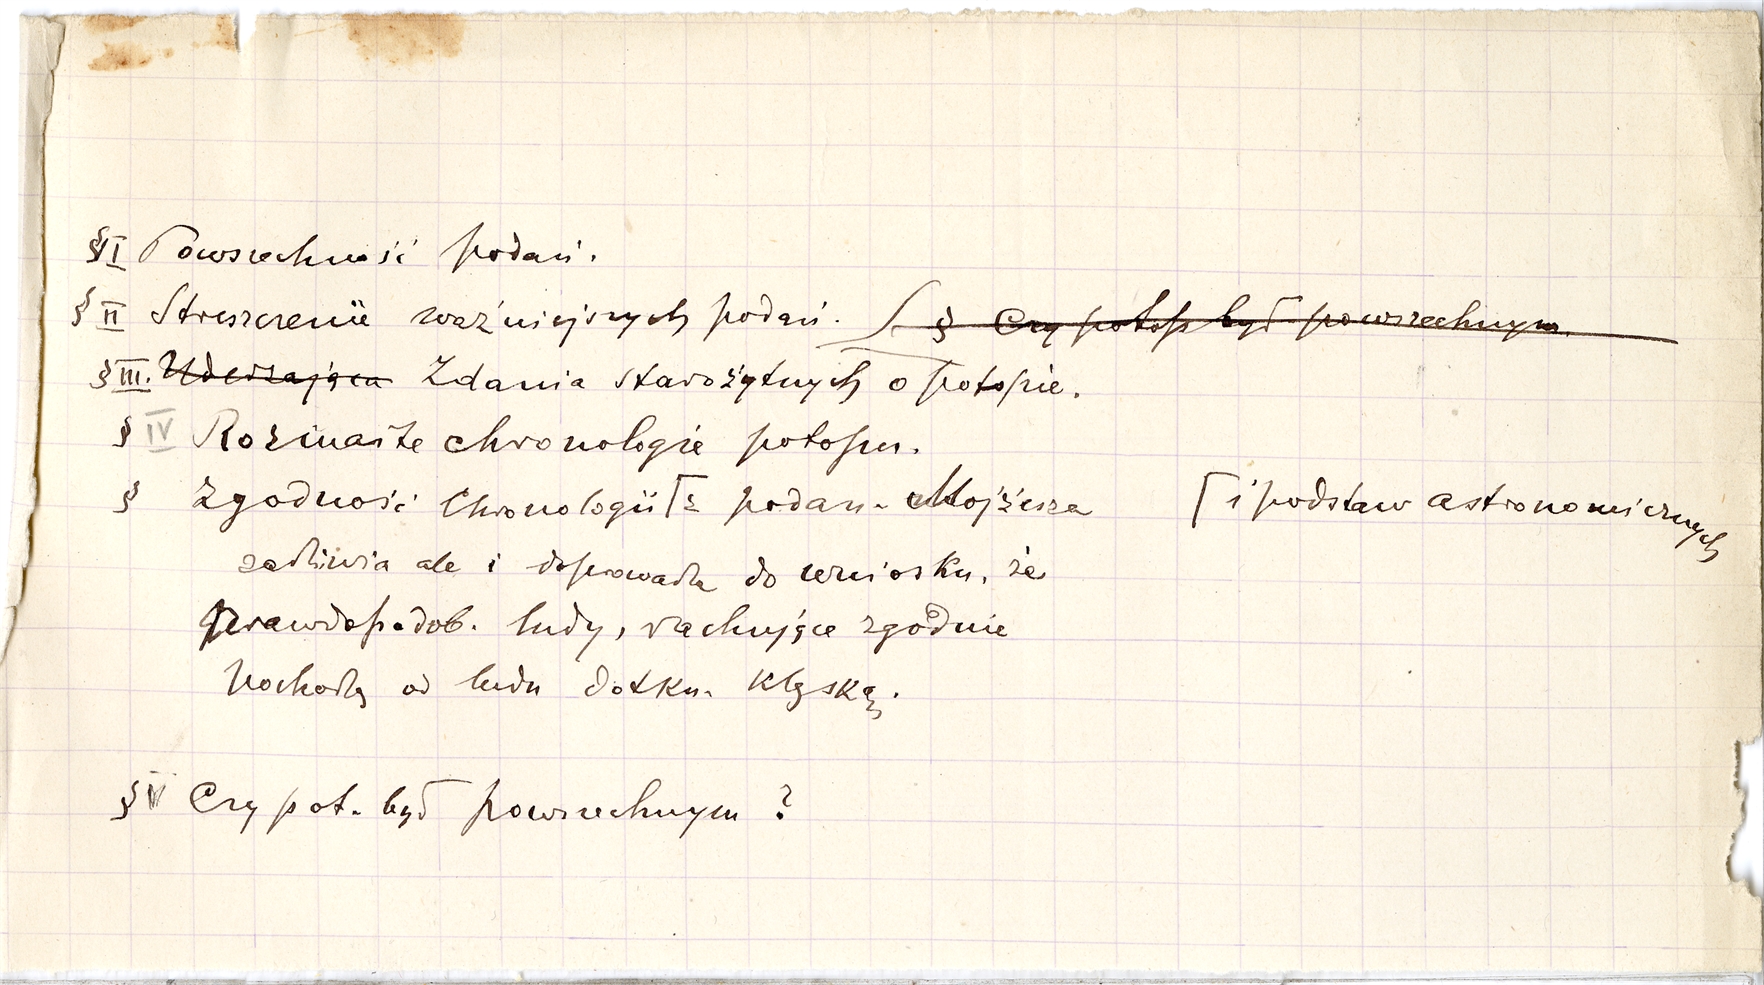 § I Powszechność podań.
§ II Streszczenie ważniejszych podań. § Czy potop był powszechnym.
§ III. Uderzająca Zdania starożytnych o potopie.
§ IV Rozmaite chronologie potopu.
§ Zgodność Chronologii ⌈ z podan. Mojżesza ⌈ i podstaw astronomicznych
zadziwia ale i doprowadza do wniosku, że
prawdopodob. ludy, rachujące zgodnie
pochodzą od ludu dotkn. klęską.
§ V Czy pot. był powszechnym ?